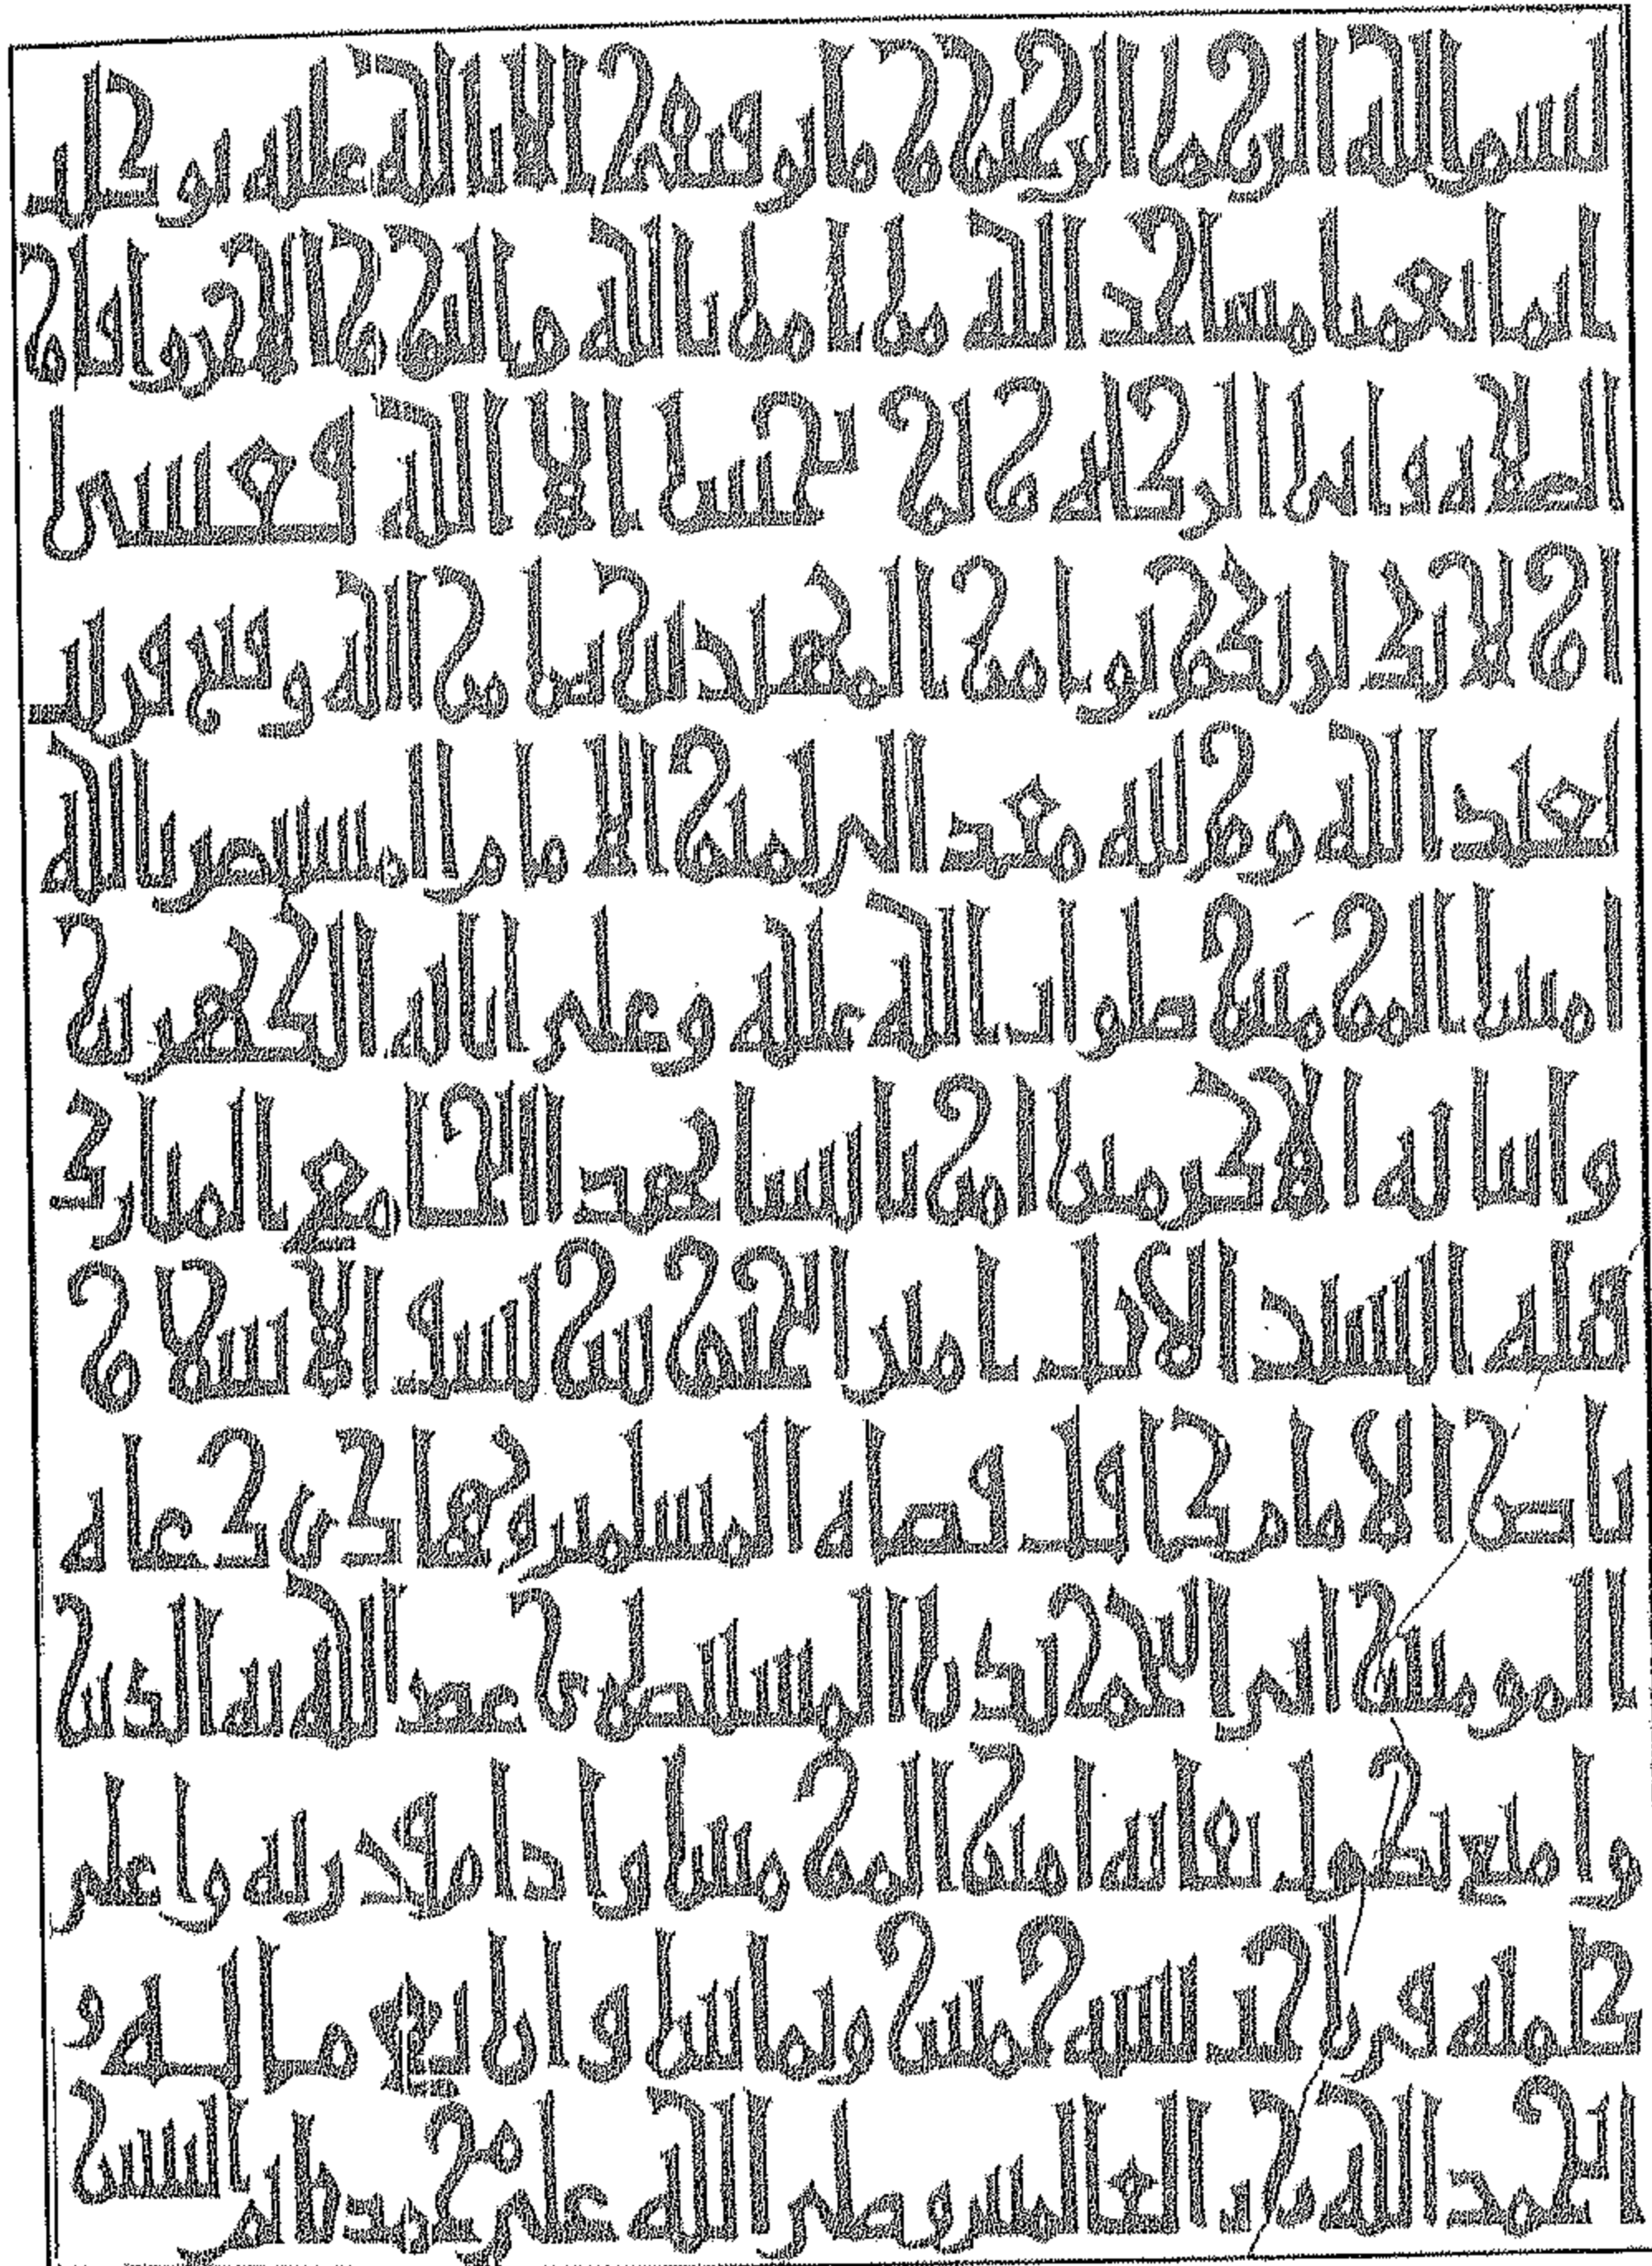 بسم الله الرحمن الرحيم وما توفيقي الا بالله عليه توكلت
انما يعمر مساجد الله من امن بالله واليوم الاخر واقام
الصلاة واتى الزكاة ولم يخش الا الله فعسى
اولئك ان يكونوا من المهتدين نصر من الله وفتح قريب
لعبد الله ووليه معد ابي تميم الامام المستنصر بالله
امير المؤمنين صلوات الله عليه وعلى ابائه الطاهرين
وابنائه الاكرمين امر بانشا هذا الجامع المبارك
فتاه السيد الاجل امير الجيوش سيف الاسلام
ناصر الامام كافل قضاة المسلمين وهادي دعاة
المومنين ابو النجم بدر المستنصري عضد الله به الدين
وامتع بطول بقائه امير المؤمنين وادام قدرته واعلى
كلمته في رجب سنة خمس وثمانين واربع مائة و
الحمد لله رب العالمين وصلى الله على محمد خاتم النبيين